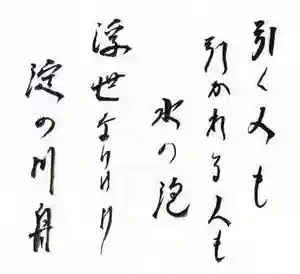 引く人も
引かれる人も
水の泡
浮世なりけり
淀の川舟